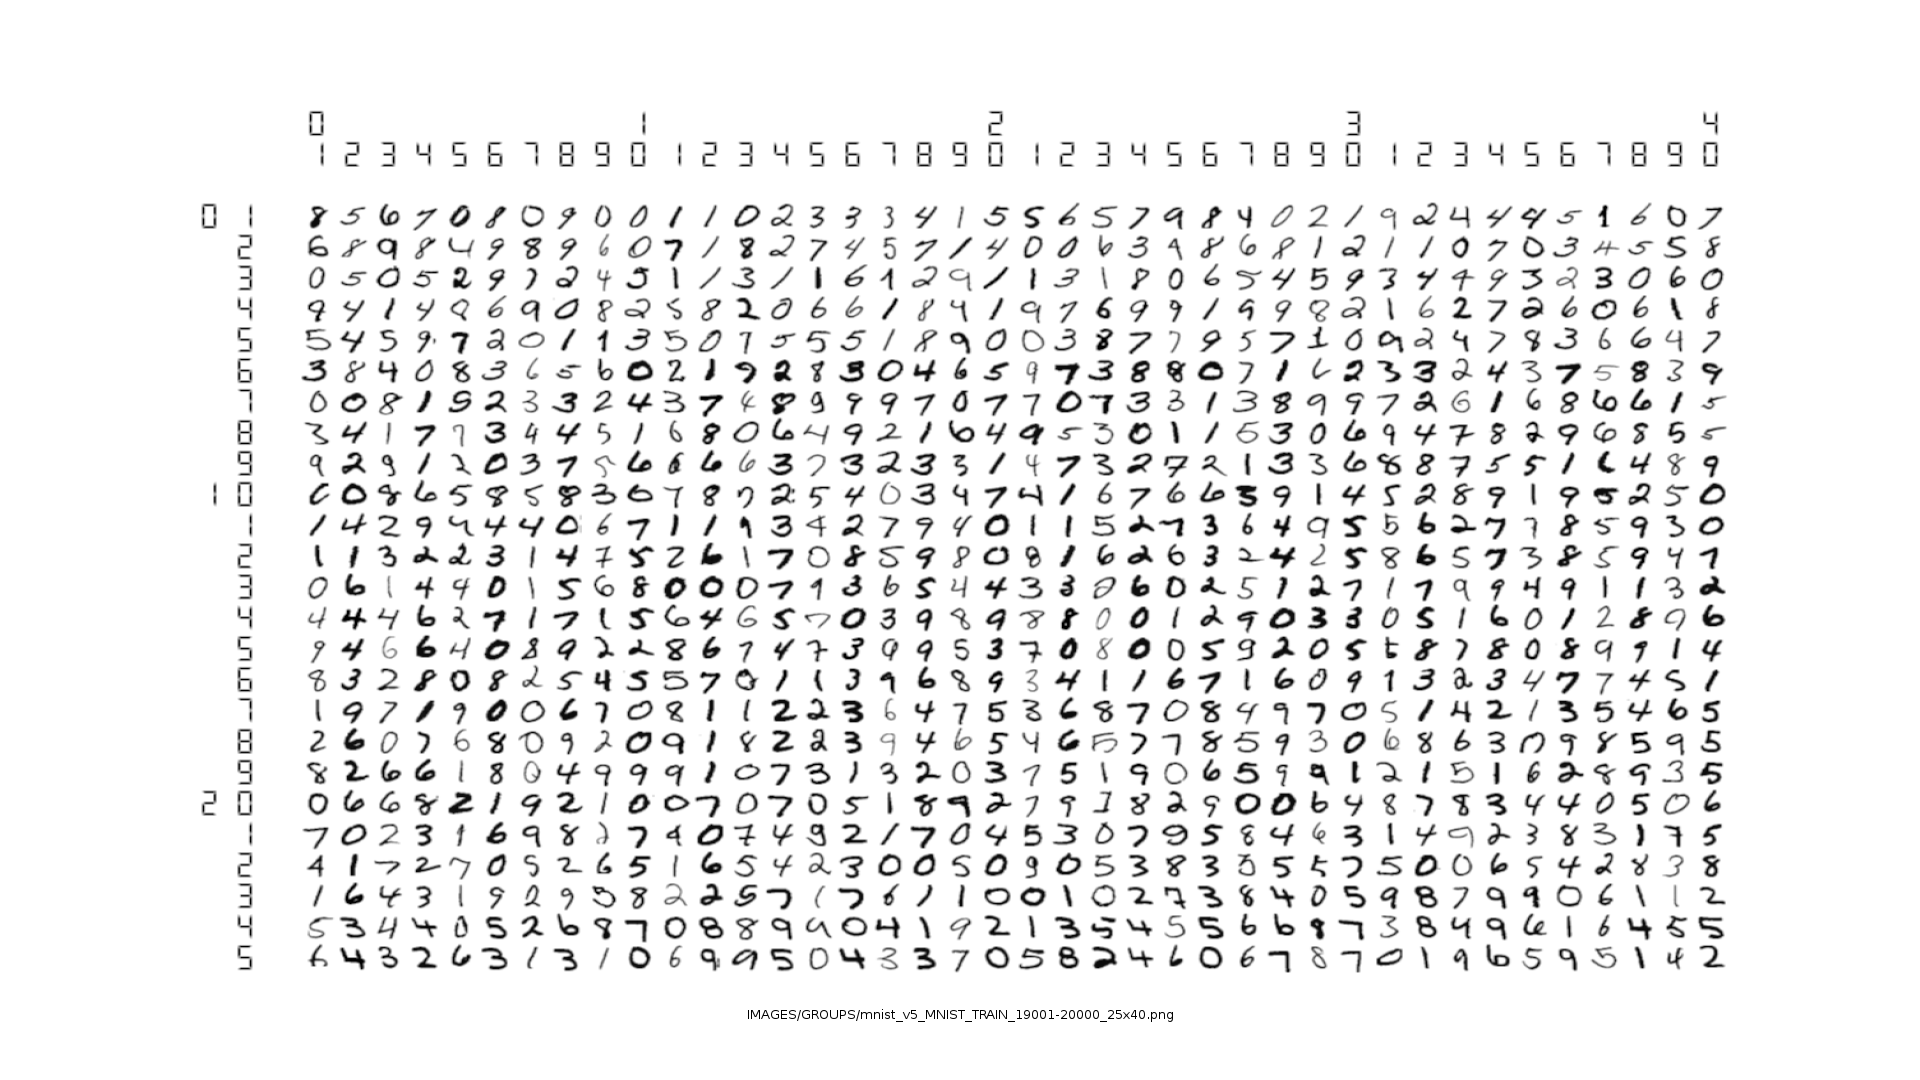 0 1 2 3 4
1 2 3 4 5 6 7 8 9 0 1 2 3 4 5 6 7 8 9 0 1 2 3 4 5 6 7 8 9 0 1 2 3 4 5 6 7 8 9 0
0 1 8 5 6 7 0 8 0 9 0 0 1 1 0 2 3 3 3 4 1 5 5 6 5 7 9 8 4 0 2 1 9 2 4 4 4 5 1 6 0 7
2 6 8 9 8 4 9 8 9 6 0 7 1 8 2 7 4 5 7 1 4 0 0 6 3 9 8 6 8 1 2 1 1 0 7 0 3 4 5 5 8
3 0 5 0 5 2 9 7 2 4 5 1 1 3 1 1 6 1 2 9 1 1 3 1 8 0 6 5 4 5 9 3 4 9 9 3 2 3 0 6 0
4 9 4 1 4 8 6 9 0 8 2 5 8 2 0 6 6 1 8 4 1 9 7 6 9 9 1 9 9 8 2 1 6 2 7 2 6 0 6 1 8
5 5 4 5 9 7 2 0 1 1 3 5 0 7 5 5 5 1 8 9 0 0 3 8 7 7 9 5 7 1 0 9 2 4 7 8 3 6 6 4 7
6 3 8 4 0 8 3 6 5 6 0 2 1 9 2 8 3 0 4 6 5 9 7 3 8 8 0 7 1 6 2 3 3 2 4 3 7 5 8 3 9
7 0 0 8 1 9 2 3 3 2 4 3 7 4 8 9 9 9 7 0 7 7 0 7 3 3 1 3 8 9 9 7 2 6 1 6 8 6 6 1 5
8 3 4 1 7 7 3 4 4 5 1 6 8 0 6 4 9 2 1 6 4 9 5 3 0 1 1 5 3 0 6 9 4 7 8 2 9 6 8 5 5
9 9 2 9 1 2 0 3 7 5 6 6 6 6 3 7 3 2 3 3 1 4 7 3 2 7 2 1 3 3 6 8 8 7 5 5 1 6 4 8 9
1 0 6 0 8 6 5 8 5 8 3 0 7 8 7 2 5 4 0 3 4 7 4 1 6 7 6 6 3 9 1 4 5 2 8 9 1 9 5 2 5 0
1 1 4 2 9 4 4 4 0 6 7 1 1 9 3 4 2 7 9 4 0 1 1 5 2 7 3 6 4 9 5 5 6 2 7 7 8 5 9 3 0
2 1 1 3 2 2 3 1 4 7 5 2 6 1 7 0 8 5 9 8 0 8 1 6 2 6 3 2 4 2 5 8 6 5 7 3 8 5 9 4 7
3 0 6 1 4 4 0 1 5 6 8 0 0 0 7 9 3 6 5 4 4 3 3 0 6 0 2 5 1 2 7 1 7 9 9 4 9 1 1 3 2
4 4 4 4 6 2 7 1 7 1 5 6 4 6 5 7 0 3 9 8 9 8 8 0 0 1 2 9 0 3 3 0 5 1 6 0 1 2 8 9 6
5 9 4 6 6 4 0 8 9 2 2 8 6 7 4 7 3 9 9 5 3 7 0 8 0 0 5 9 2 0 5 5 8 7 8 0 8 9 9 1 4
6 8 3 2 8 0 8 2 5 4 5 5 7 0 1 1 3 9 6 8 9 3 4 1 1 6 7 1 6 0 9 1 3 2 3 4 7 7 4 5 1
7 1 9 7 1 9 0 0 6 7 0 8 1 1 2 2 3 6 4 7 5 3 6 8 7 0 8 4 9 7 0 5 1 4 2 1 3 5 4 6 5
8 2 6 0 7 6 8 0 9 2 0 9 1 8 2 2 3 9 4 6 5 4 6 5 7 7 8 5 9 3 0 6 8 6 3 0 9 8 5 9 5
9 8 2 6 6 1 8 0 4 9 9 9 1 0 7 3 1 3 2 0 3 7 5 1 9 0 6 5 9 9 1 2 1 5 1 6 2 8 9 3 5
2 0 0 6 6 8 2 1 9 2 1 0 0 7 0 7 0 5 1 8 9 2 7 9 1 8 2 9 0 0 6 4 8 7 8 3 4 4 0 5 0 6
1 7 0 2 3 1 6 9 8 2 7 9 0 7 4 9 2 1 7 0 4 5 3 0 7 9 5 8 4 6 3 1 4 9 2 3 8 3 1 7 5
2 4 1 7 2 7 0 5 2 6 5 1 6 5 4 2 3 0 0 5 0 9 0 5 3 8 3 5 5 5 7 5 0 0 6 5 4 2 8 3 8
3 1 6 4 3 1 9 2 9 5 8 2 2 5 7 1 7 6 1 1 0 0 1 0 2 7 3 8 4 0 5 9 8 7 9 9 0 6 1 1 2
4 5 3 4 4 0 5 2 6 8 7 0 8 8 9 9 0 4 1 9 2 1 3 5 4 5 5 6 6 9 7 3 8 4 9 6 1 6 4 5 5
5 6 4 3 2 6 3 1 3 1 0 6 9 9 5 0 4 3 3 7 0 5 8 2 4 6 0 6 7 8 7 0 1 9 6 5 9 5 1 4 2
IMAGES/GROUPS/mnist_v5_MNIST_TRAIN_19001-20000_25x40.png